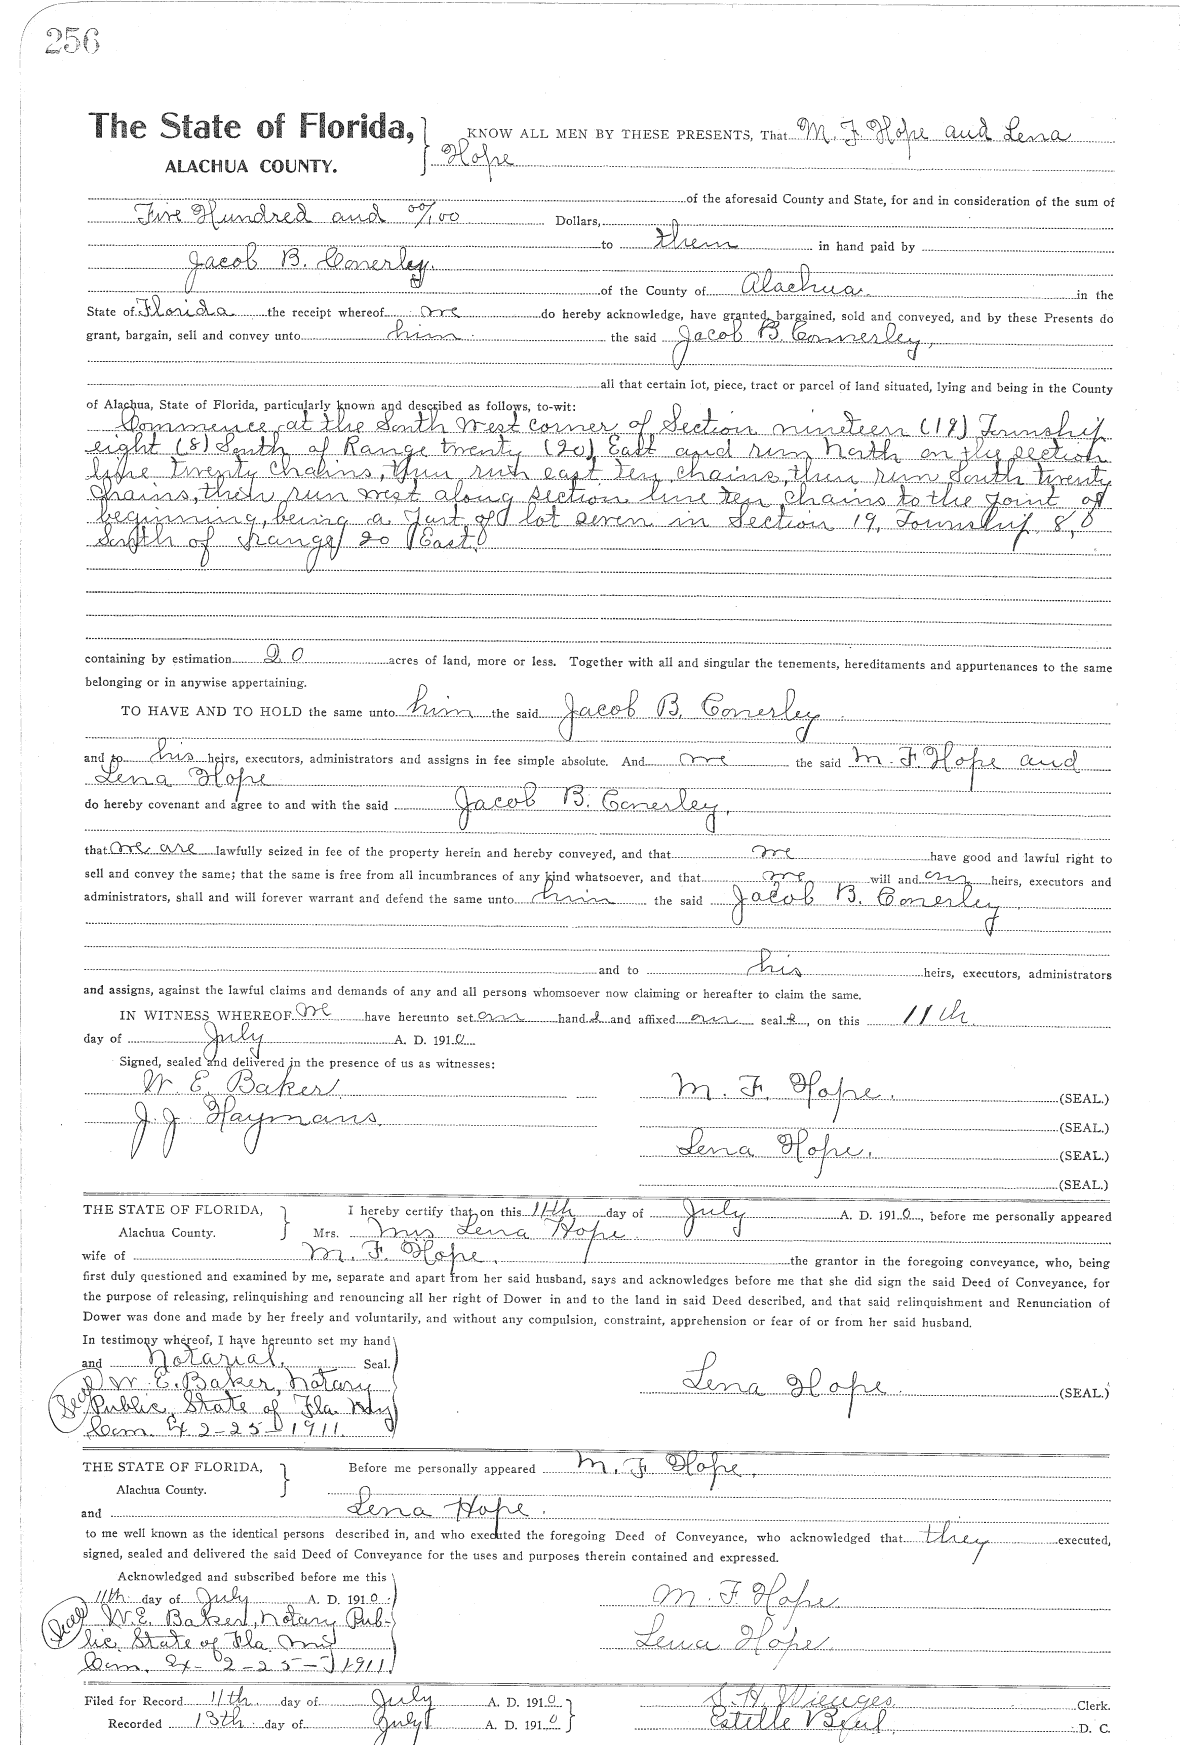 256
The State of Florida,
ALACHUA COUNTY.
KNOW ALL MEN BY THESE PRESENTS, That M. F. Hope and Lena
Hope
of the aforesaid County and State, for and in consideration of the sum of
Five Hundred and 00/100 Dollars,
to them in hand paid by
Jacob B. Conerley.
of the County of Alachua in the
State of Florida the receipt whereof we do hereby acknowledge, have granted, bargained, sold and conveyed, and by these Presents do
grant, bargain, sell and convey unto him the said Jacob B. Connerley,
all that certain lot, piece, tract or parcel of land situated, lying and being in the County
of Alachua, State of Florida, particularly known and described as follows, to-wit:
Commence at the South west corner of Section nineteen (19) Township
eight (8) South of Range twenty (20) East and run North on the section
line twenty chains, then run east ten chains, then run South twenty
chains, then run west along section line ten chains to the point of
beginning, being a part of lot seven in Section 19, Township 8,
South of range 20 East.
containing by estimation 20 acres of land, more or less. Together with all and singular the tenements, hereditaments and appurtenances to the same
belonging or in anywise appertaining.
TO HAVE AND TO HOLD the same unto him the said Jacob B. Conerley
and to his heirs, executors, administrators and assigns in fee simple absolute. And we the said M. F. Hope and
Lena Hope
do hereby covenant and agree to and with the said Jacob B. Conerley,
that we are lawfully seized in fee of the property herein and hereby conveyed, and that we have good and lawful right to
sell and convey the same; that the same is free from all incumbrances of any kind whatsoever, and that we will and our heirs, executors and
administrators, shall and will forever warrant and defend the same unto him the said Jacob B. Conerley
and to his heirs, executors, administrators
and assigns, against the lawful claims and demands of any and all persons whomsoever now claiming or hereafter to claim the same.
IN WITNESS WHEREOF we have hereunto set our hand s and affixed our seal s, on this 11th
day of July A. D. 1910.
Signed, sealed and delivered in the presence of us as witnesses:
W. E. Baker
J. J. Haymans.
M. F. Hope. (SEAL.)
(SEAL.)
Lena Hope. (SEAL.)
(SEAL.)
THE STATE OF FLORIDA,
Alachua County.
I hereby certify that on this 11th day of July A. D. 1910, before me personally appeared
Mrs. Mrs Lena Hope
wife of M. F. Hope. the grantor in the foregoing conveyance, who, being
first duly questioned and examined by me, separate and apart from her said husband, says and acknowledges before me that she did sign the said Deed of Conveyance, for
the purpose of releasing, relinquishing and renouncing all her right of Dower in and to the land in said Deed described, and that said relinquishment and Renunciation of
Dower was done and made by her freely and voluntarily, and without any compulsion, constraint, apprehension or fear of or from her said husband.
In testimony whereof, I have hereunto set my hand
and Notarial, Seal.
Seal
W. E. Baker, Notary
Public, State of Fla My
Com. Ex 2-25-1911.
Lena Hope (SEAL.)
THE STATE OF FLORIDA,
Alachua County.
Before me personally appeared M. F. Hope,
and Lena Hope.
to me well known as the identical persons described in, and who executed the foregoing Deed of Conveyance, who acknowledged that they executed,
signed, sealed and delivered the said Deed of Conveyance for the uses and purposes therein contained and expressed.
Acknowledged and subscribed before me this
11th day of July A. D. 1910.
Seal
W. E. Baker, Notary Pub-
lic, State of Fla My
Com. Ex- 2-25-1911
M. F. Hope
Lena Hope
Filed for Record 11th day of July A. D. 1910
Recorded 13th day of July A. D. 1910
S. H. Wienges Clerk.
Estelle D. C.